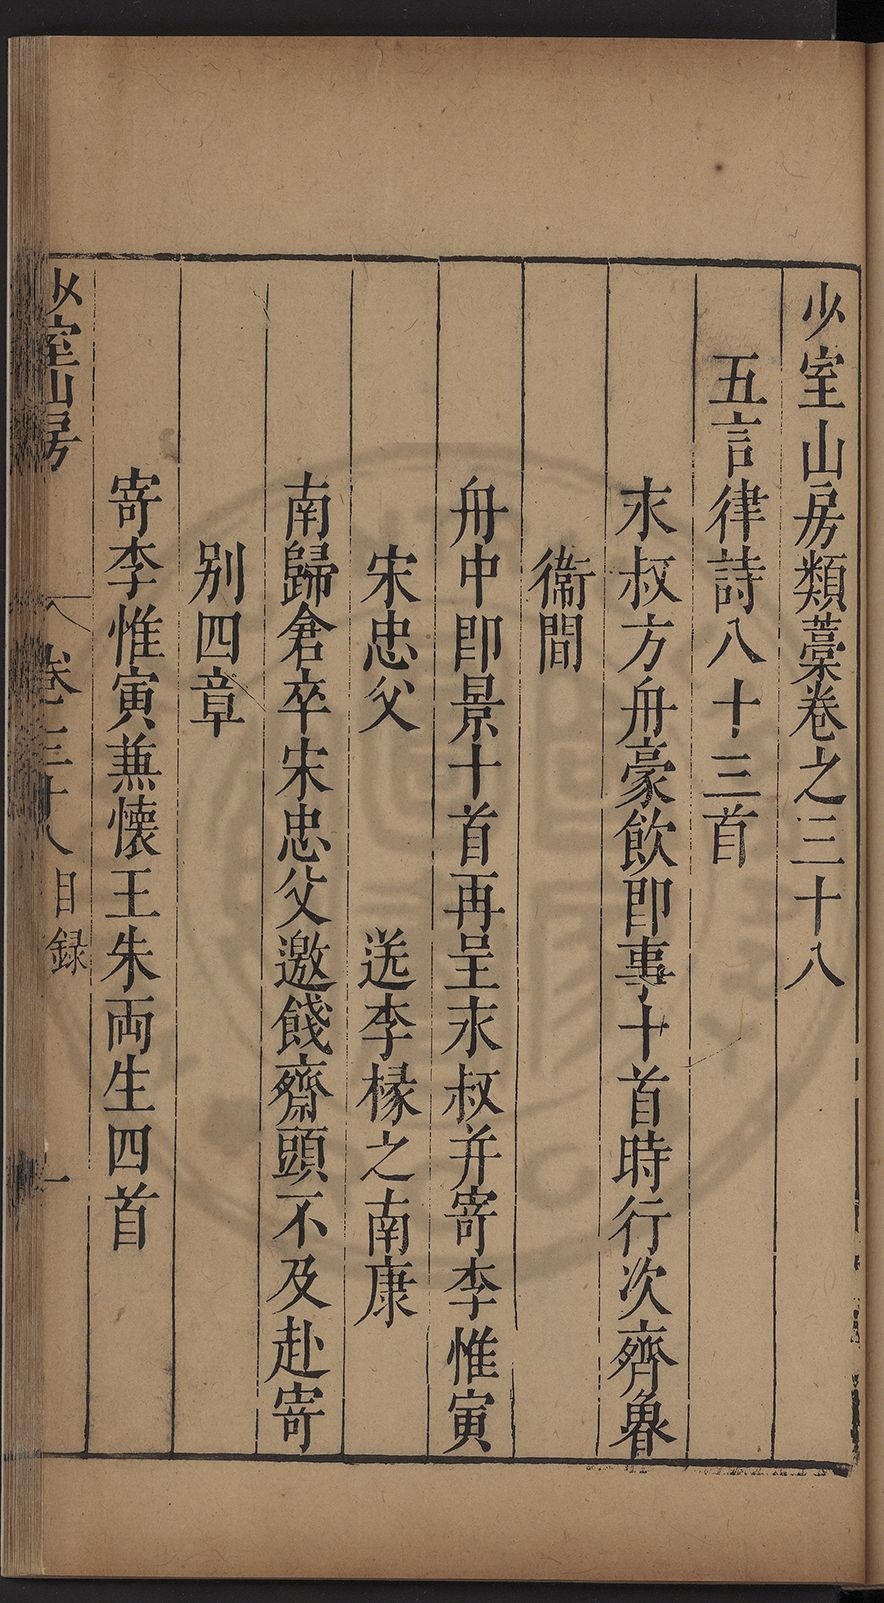 少室山房類藁卷之三十八
五言律詩八十三首
永叔方舟豪飲即事十首時行次齊魯
衞間
舟中即景十首再呈永叔并寄李惟寅
宋忠父　送李椽之南康
南歸倉卒宋忠父邀餞齋頭不及赴寄
别四章
寄李惟寅兼懷王朱両生四首
少室山房　卷三十八目録　一